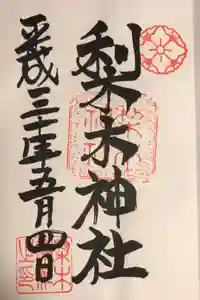 梨木神社
平成三十年五月四日